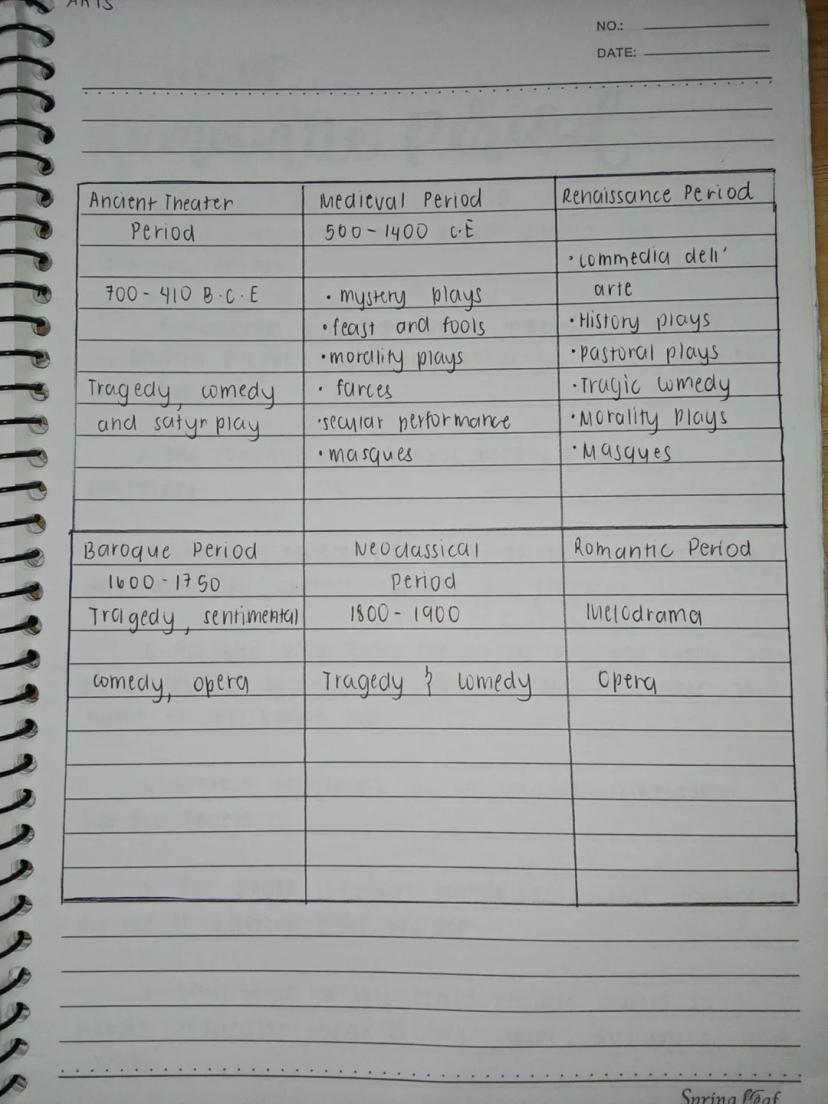 ARTS
NO.:
DATE:
Ancient Theater
Period
700 - 410 B.C.E
Tragedy, comedy
and satyr play
Medieval Period
500 - 1400 C.E
• mystery plays
• feast and fools
• morality plays
• farces
• secular performance
• masques
Renaissance Period
• commedia dell'
arte
• History plays
• pastoral plays
• Tragic comedy
• Morality plays
• Masques
Baroque Period
1600 - 1750
Tragedy, sentimental
comedy, opera
Neoclassical
Period
1800 - 1900
Tragedy & comedy
Romantic Period
Melodrama
Opera
Spring Leaf